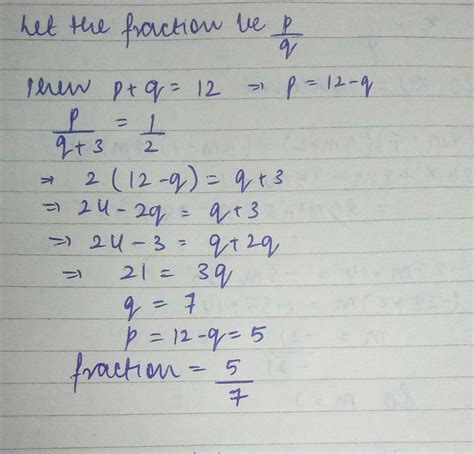 Let the fraction be p/q
Then p+q = 12 ⇒ p = 12-q
p/q+3 = 1/2
⇒ 2(12-q) = q+3
⇒ 24-2q = q+3
⇒ 24-3 = q+2q
⇒ 21 = 3q
q = 7
p = 12-q = 5
fraction = 5/7